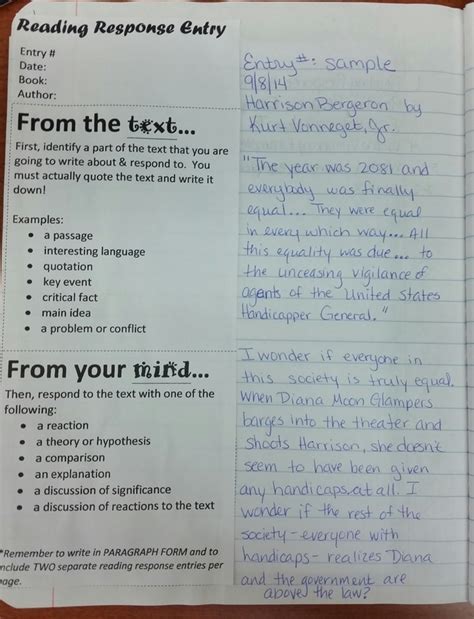 Reading Response Entry
Entry #
Date:
Book:
Author:
From the text...
First, identify a part of the text that you are
going to write about & respond to. You
must actually quote the text and write it
down!
Examples:
• a passage
• interesting language
• quotation
• key event
• critical fact
• main idea
• a problem or conflict
From your mind...
Then, respond to the text with one of the
following:
• a reaction
• a theory or hypothesis
• a comparison
• an explanation
• a discussion of significance
• a discussion of reactions to the text
*Remember to write in PARAGRAPH FORM and to
include TWO separate reading response entries per
page.
Entry #: sample
9/8/14
Harrison Bergeron by
Kurt Vonneget, Jr.
"The year was 2081 and
everybody was finally
equal... They were equal
in every which way... All
this equality was due... to
the unceasing vigilance of
agents of the United States
Handicapper General."
I wonder if everyone in
this society is truly equal.
When Diana Moon Glampers
barges into the theater and
shoots Harrison, she doesn't
seem to have been given
any handicaps at all. I
wonder if the rest of the
society - everyone with
handicaps - realizes Diana
and the government are
above the law?